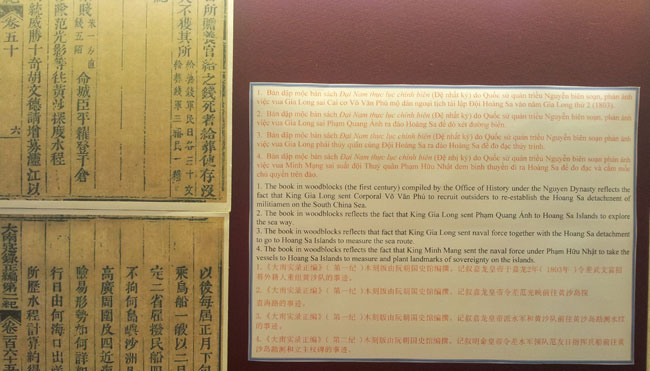 所贍養官給之錢死者給葬他存沒
矢不獲其所
命城臣平糶登平倉
險范光影等往黃莎探度水程
統威勝十奇胡文德請增募瀘江以
卷五十
六
以後每居正月下旬
乘烏船一艘以二月
定二省雇撥民船四
不拘何島嶼沙洲凡
高廣周圍及四近海
險易形勢如何詳
行日由何海口出
所歷水程計算約得
大南寔錄正編第二紀 卷百六十五
1. Bản dập mộc bản sách Đại Nam thực lục chính biên (Đệ nhất kỷ) do Quốc sử quán triều Nguyễn biên soạn, phản ánh
việc vua Gia Long sai Cai cơ Võ Văn Phú mộ dân ngoại tịch tái lập Đội Hoàng Sa vào năm Gia Long thứ 2 (1803).
2. Bản dập mộc bản sách Đại Nam thực lục chính biên (Đệ nhất kỷ) do Quốc sử quán triều Nguyễn biên soạn, phản ánh
việc vua Gia Long sai Phạm Quang Ảnh ra đảo Hoàng Sa để đo xét đường biển.
3. Bản dập mộc bản sách Đại Nam thực lục chính biên (Đệ nhất kỷ) do Quốc sử quán triều Nguyễn biên soạn phản ánh
việc vua Gia Long phái thủy quân cùng Đội Hoàng Sa ra đảo Hoàng Sa để đo đạc thủy trình.
4. Bản dập mộc bản sách Đại Nam thực lục chính biên (Đệ nhị kỷ) do Quốc sử quán triều Nguyễn biên soạn phản ánh
việc vua Minh Mạng sai suất đội Thuỷ quân Phạm Hữu Nhật đem binh thuyền đi ra Hoàng Sa để đo đạc và cắm mốc
chủ quyền trên đảo.
1. The book in woodblocks (the first century) compiled by the Office of History under the Nguyen Dynasty reflects the
fact that King Gia Long sent Corporal Võ Văn Phú to recruit outsiders to re-establish the Hoang Sa detachment of
militiamen on the South China Sea.
2. The book in woodblocks reflects the fact that King Gia Long sent Phạm Quang Ảnh to Hoang Sa Islands to explore
the sea way.
3. The book in woodblocks reflects the fact that King Gia Long sent naval force together with the Hoang Sa detachment
to go to Hoang Sa Islands to measure the sea route.
4. The book in woodblocks reflects the fact that King Minh Mang sent the naval force under Phạm Hữu Nhật to take the
vessels to Hoang Sa Islands to measure and plant landmarks of sovereignty on the island.
1.《大南实录正编》（第一纪）木刻版由阮朝国史馆编撰，记叙嘉龙皇帝于嘉龙2年（1803年）令差武文富招
募外籍人重组黄沙队的事迹。
2.《大南实录正编》（第一纪）木刻版由阮朝国史馆编撰，记叙嘉龙皇帝令差范光映前往黄沙勘探
黄海路的事迹。
3.《大南实录正编》（第一纪）木刻版由阮朝国史馆编撰，记叙嘉龙皇帝派水军和黄沙队前往黄沙岛勘测水纹
的事迹。
4.《大南实录正编》（第二纪）木刻版由阮朝国史馆编撰，记叙明命皇帝令差水军操队范友日指挥兵船前往黄
沙岛勘测和立主权碑的事迹。